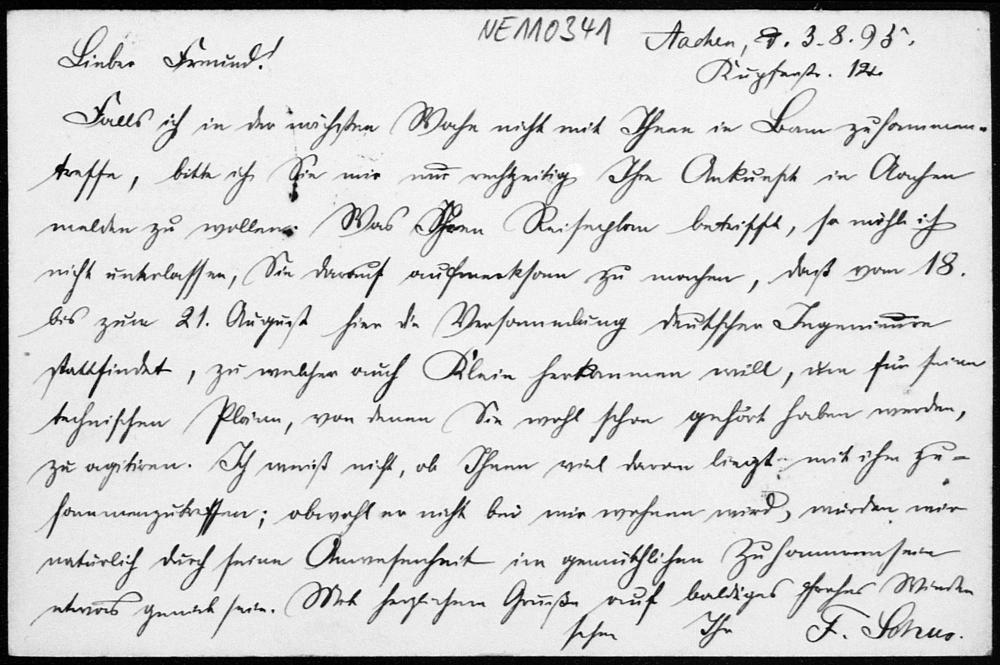 NE110341
Aachen, d. 3.8.95.
Kupferstr. 12.
Lieber Freund!
Falls ich in der nächsten Woche nicht mit Ihnen in Bonn zusammen-
treffe, bitte ich Sie mir nur rechtzeitig Ihre Ankunft in Aachen
melden zu wollen. Was Ihren Reiseplan betrifft, so möchte ich
nicht unterlassen, Sie darauf aufmerksam zu machen, daß vom 18.
bis zum 21. August hier die Versammlung deutscher Ingenieure
stattfindet, zu welcher auch Klein herkommen will, um für seine
technischen Pläne, von denen Sie wohl schon gehört haben werden,
zu agitiren. Ich weiß nicht, ob Ihnen viel daran liegt mit ihm zu-
sammenzutreffen; obwohl er nicht bei mir wohnen wird, würden wir
natürlich durch seine Anwesenheit im gemüthlichen Zusammensein
etwas gestört sein. Mit herzlichem Gruße auf baldiges frohes Wieder-
sehn Ihr F. Schur.